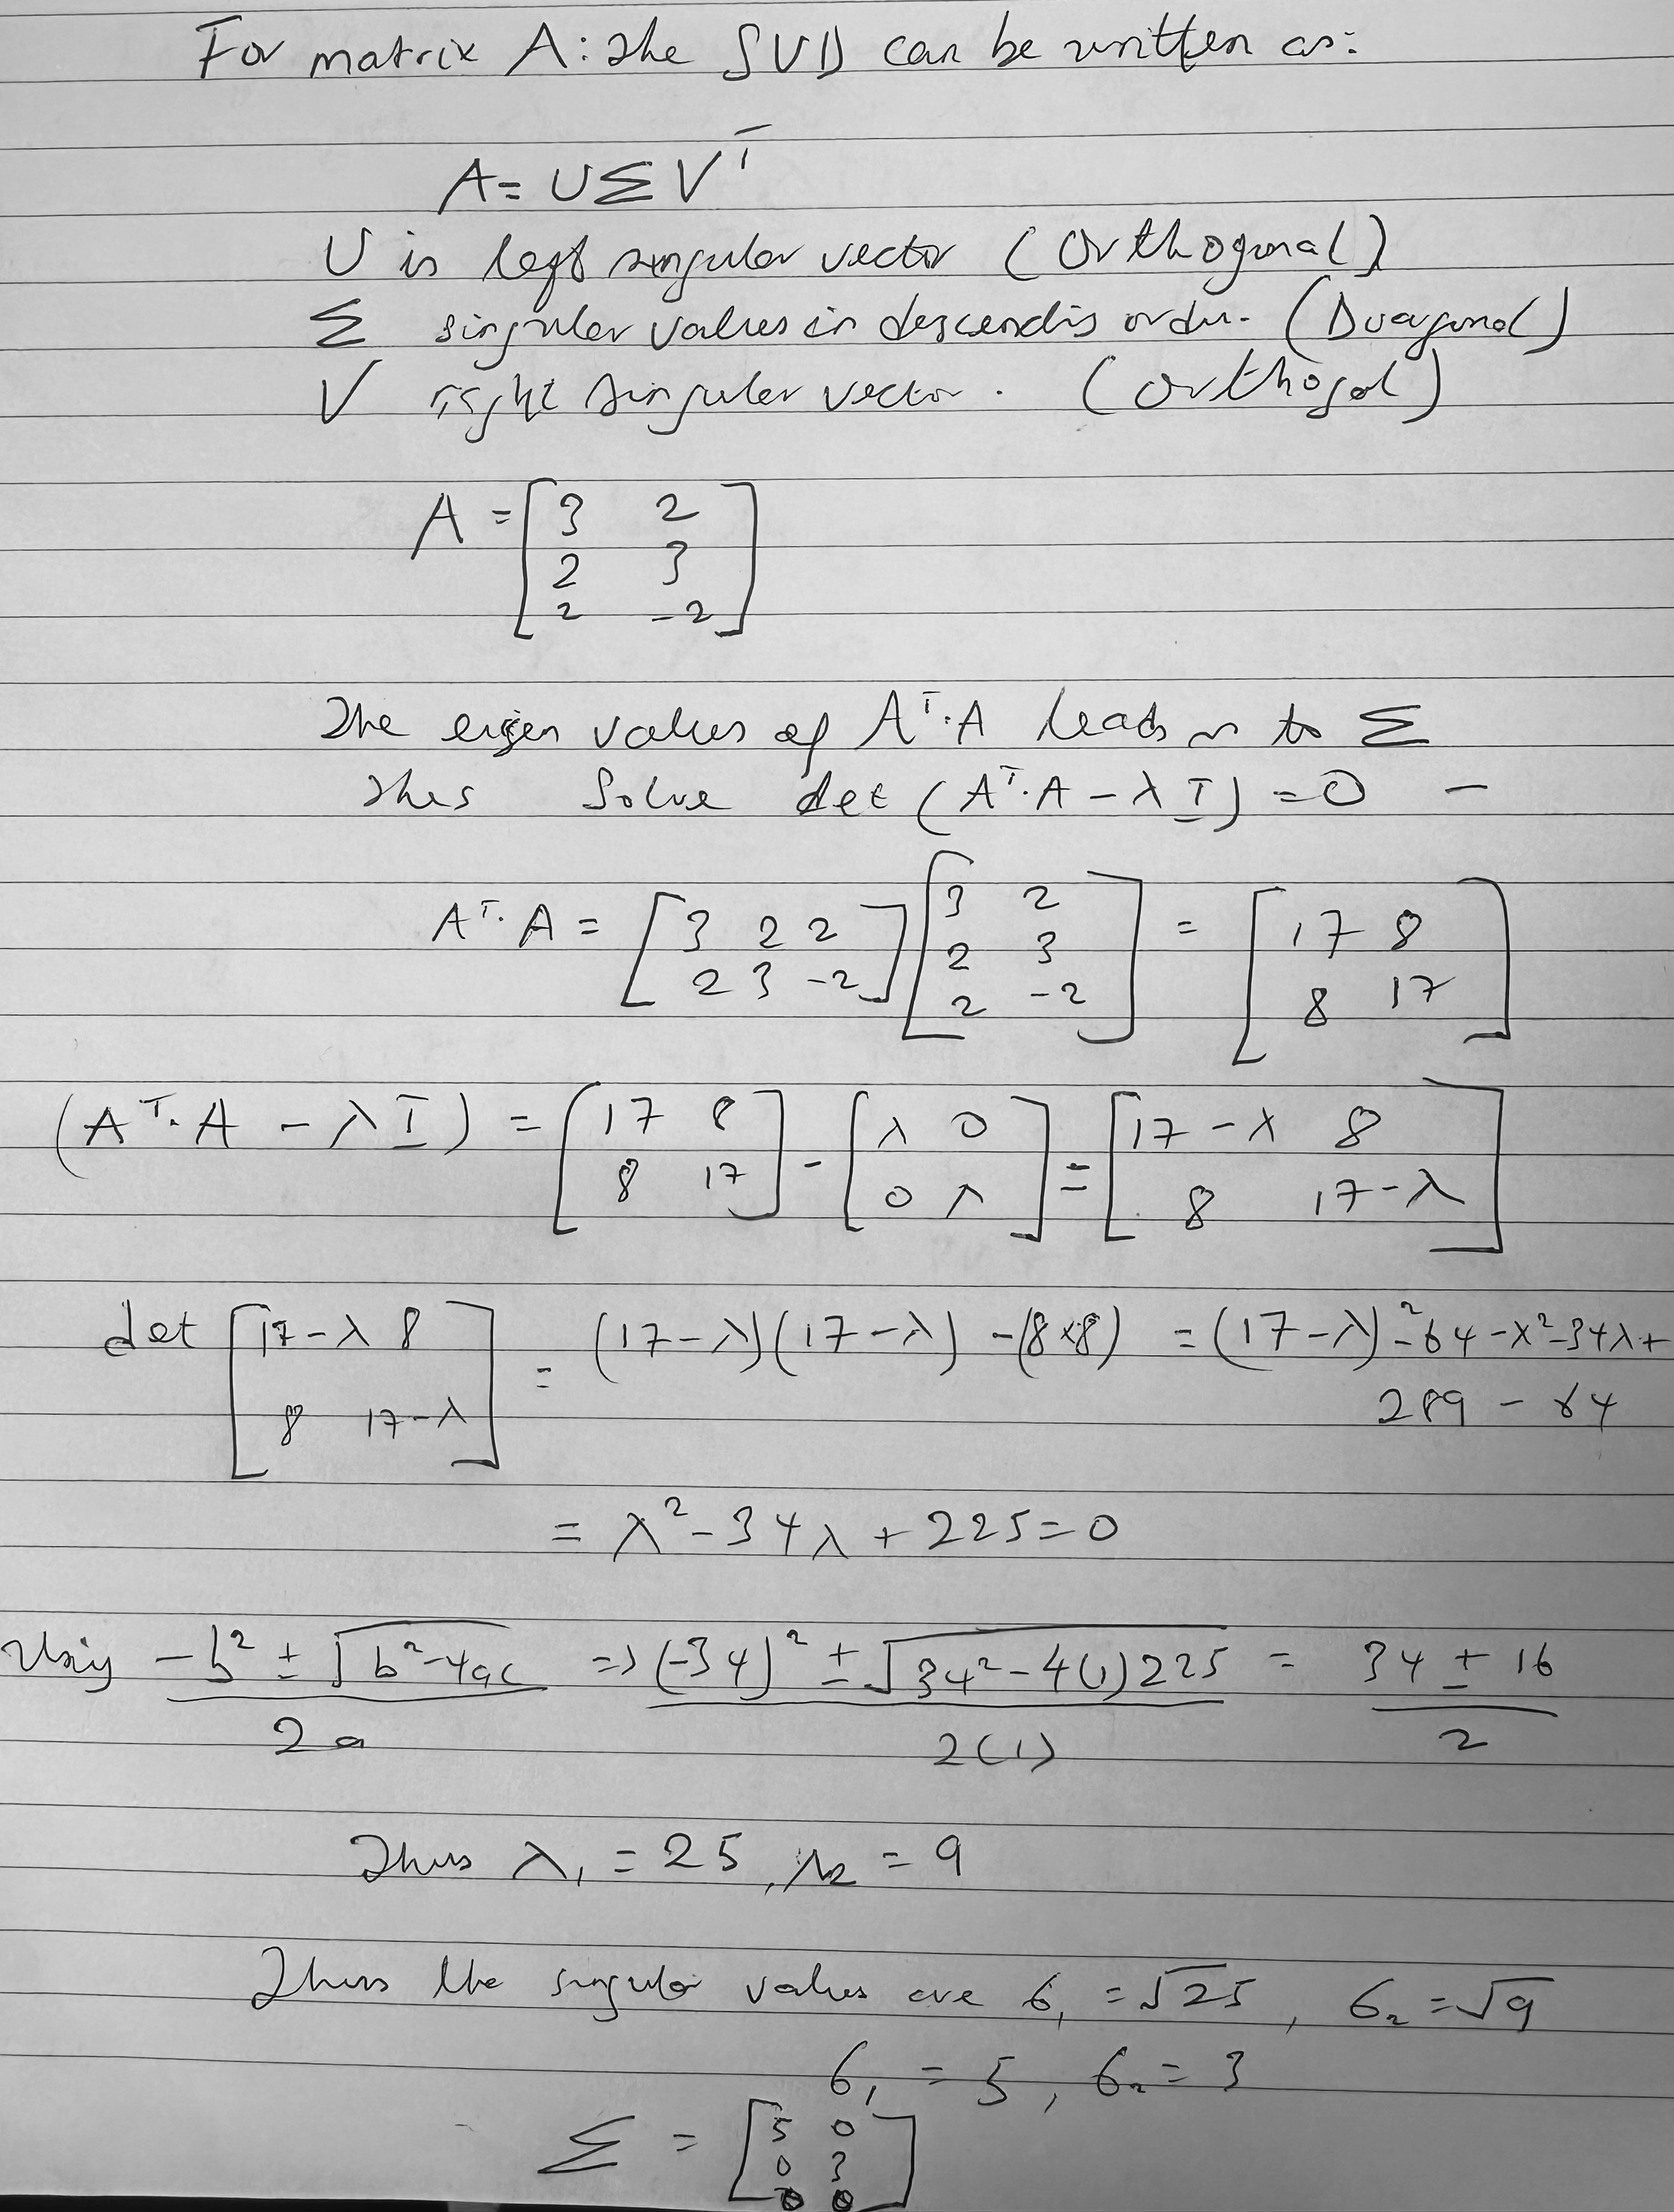 For matrix A: The SVD can be written as:
A = UΣV^T
U is left singular vector (Orthogonal)
Σ singular values in descendis order. (Duagonal)
V right singular vector. (Orthogol)
A = [3 2
2 3
2 -2]
The eigen values of A^T·A leads us to Σ
Thus Solve det (A^T·A - λI) = 0 -
A^T·A = [3 2 2; 2 3 -2] [3 2; 2 3; 2 -2] = [17 8; 8 17]
(A^T·A - λI) = [17 8; 8 17] - [λ 0; 0 λ] = [17-λ 8; 8 17-λ]
det [17-λ 8; 8 17-λ] = (17-λ)(17-λ) - (8×8) = (17-λ)^2 - 64 - λ^2 - 34λ +
289 - 64
= λ^2 - 34λ + 225 = 0
Using -b^2 ± √(b^2-4ac) / 2a => (-34)^2 ± √(34^2 - 4(1)225) / 2(1) = 34 ± 16 / 2
Thus λ1 = 25, λ2 = 9
Thus the singular values are 61 = √25, 62 = √9
61 = 5, 62 = 3
Σ = [5 0
0 3
0 0]